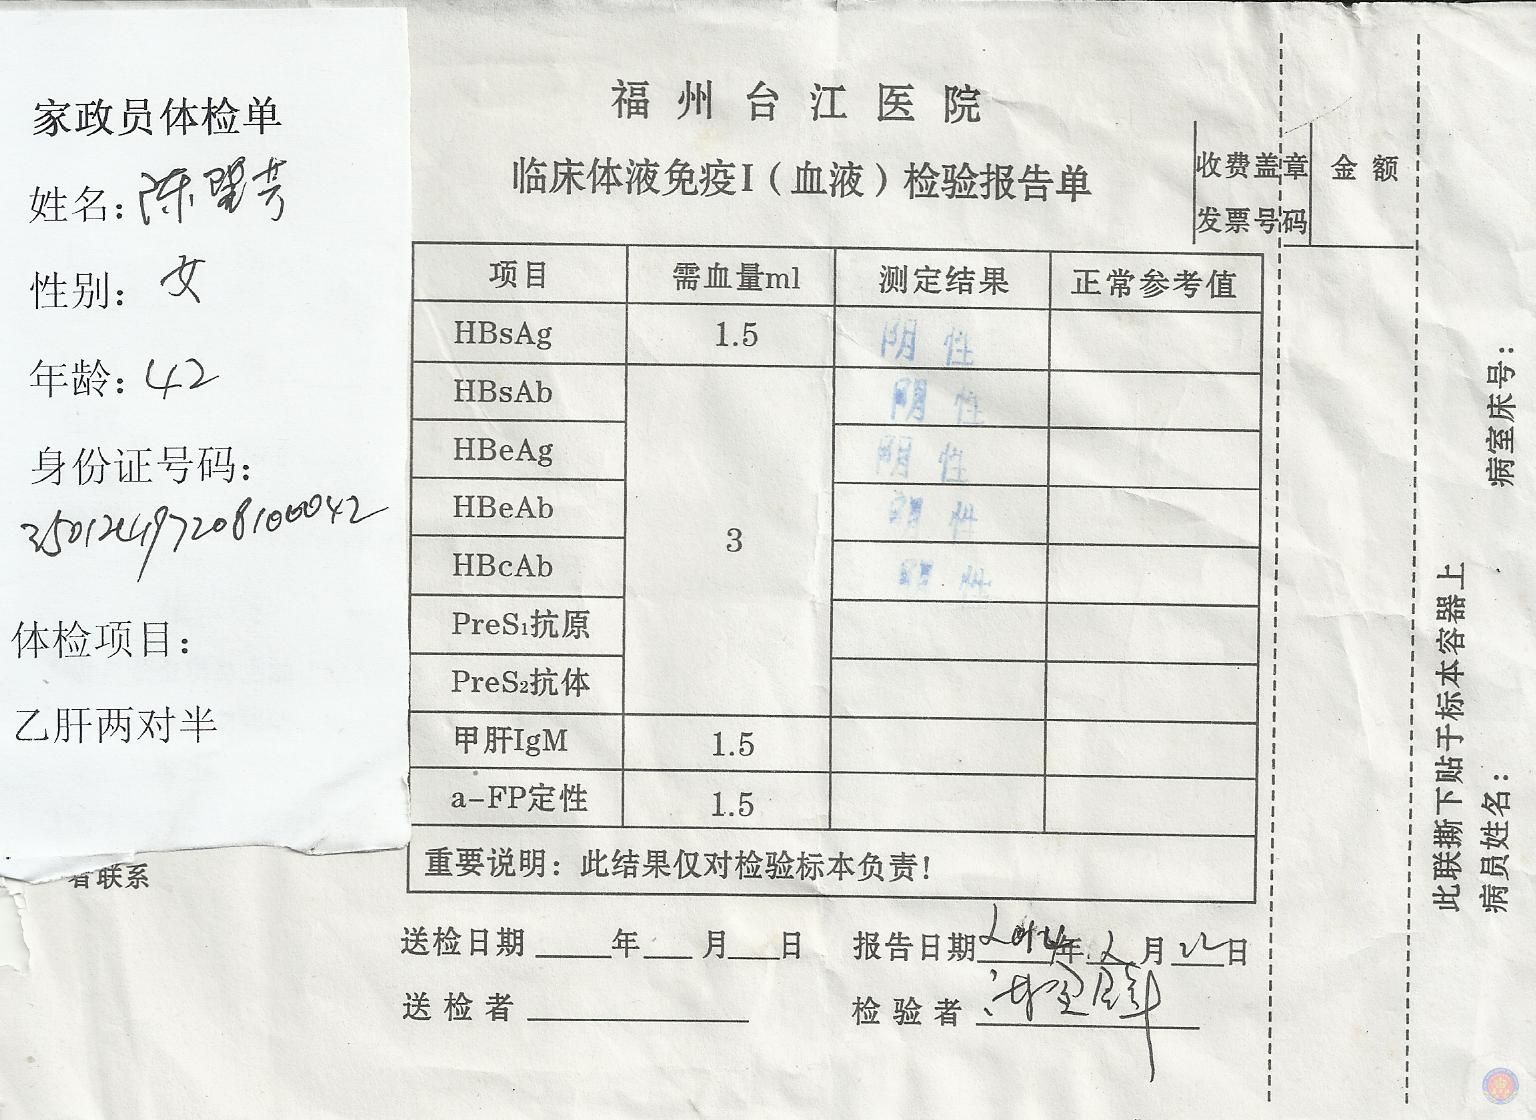 家政员体检单
姓名：陈
性别：女
年龄：42
身份证号码：
体检项目：
乙肝两对半
者联系
福州台江医院
临床体液免疫I（血液）检验报告单
收费盖章 金额
发票号码
项目 需血量ml 测定结果 正常参考值
HBsAg 1.5 阴性
HBsAb 阴性
HBeAg 阴性
HBeAb 阴性
HBcAb 3 阴性
PreS₁抗原
PreS₂抗体
甲肝IgM 1.5
a-FP定性 1.5
重要说明：此结果仅对检验标本负责！
送检日期 年 月 日 报告日期 年 2 月 22 日
送检者 检验者
此联撕下贴于标本容器上
病员姓名： 病室床号：